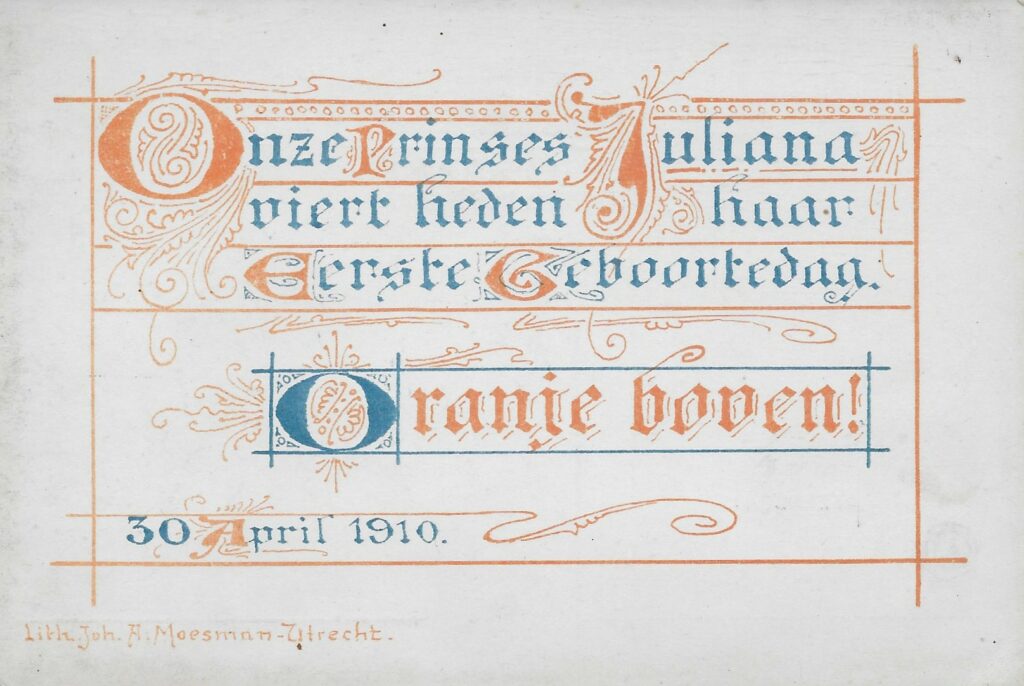 Onze Prinses Juliana
viert heden haar
Eerste Geboortedag.
Oranje boven!
30 April 1910.
Lith. Joh. A. Moesman-Utrecht.